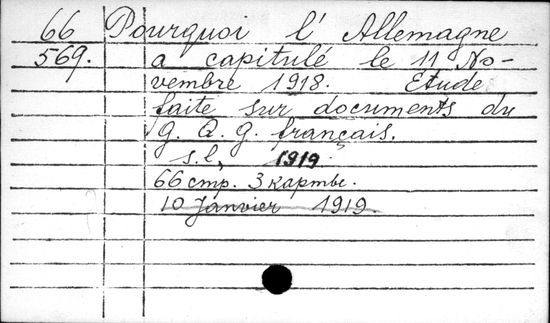 66 Pourquoi l' Allemagne
569. a capitulé le 11 No-
vembre 1918. Etude
faite sur documents du
g. Q. g. français.
s.l., 1919
66 стр. 3 карты.
10 Janvier 1919.